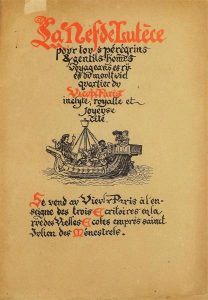 La Nef de Lutèce
pour tous pérégrins
& gentils homes
voyageans es ru
es du moult viel
quartier du
Vieulx Paris
inclyte, royalle et
joyeuse
cité
Se vend au Vieulx Paris à l'en-
seigne des trois Escritoires en la
rue des Vielles Escoles emprès sainct
Julien des Ménestrels.